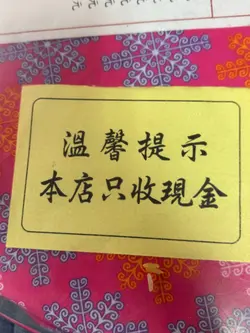 溫馨提示
本店只收現金